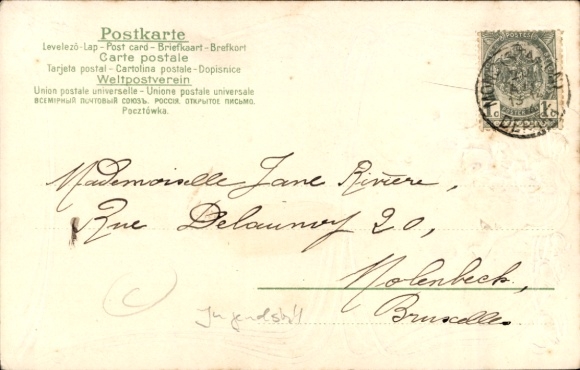 Postkarte
Levelező-Lap - Post card - Briefkaart - Brefkort
Carte postale
Tarjeta postal - Cartolina postale - Dopisnice
Weltpostverein
Union postale universelle - Unione postale universale
ВСЕМІРНЫЙ ПОЧТОВЫЙ СОЮЗЪ. РОССІЯ. ОТКРЫТОЕ ПИСЬМО.
Pocztówka.
Mademoiselle Jane Rivière,
Rue Delaunoy 20,
Molenbeck,
Bruxelles.
Jugendstil